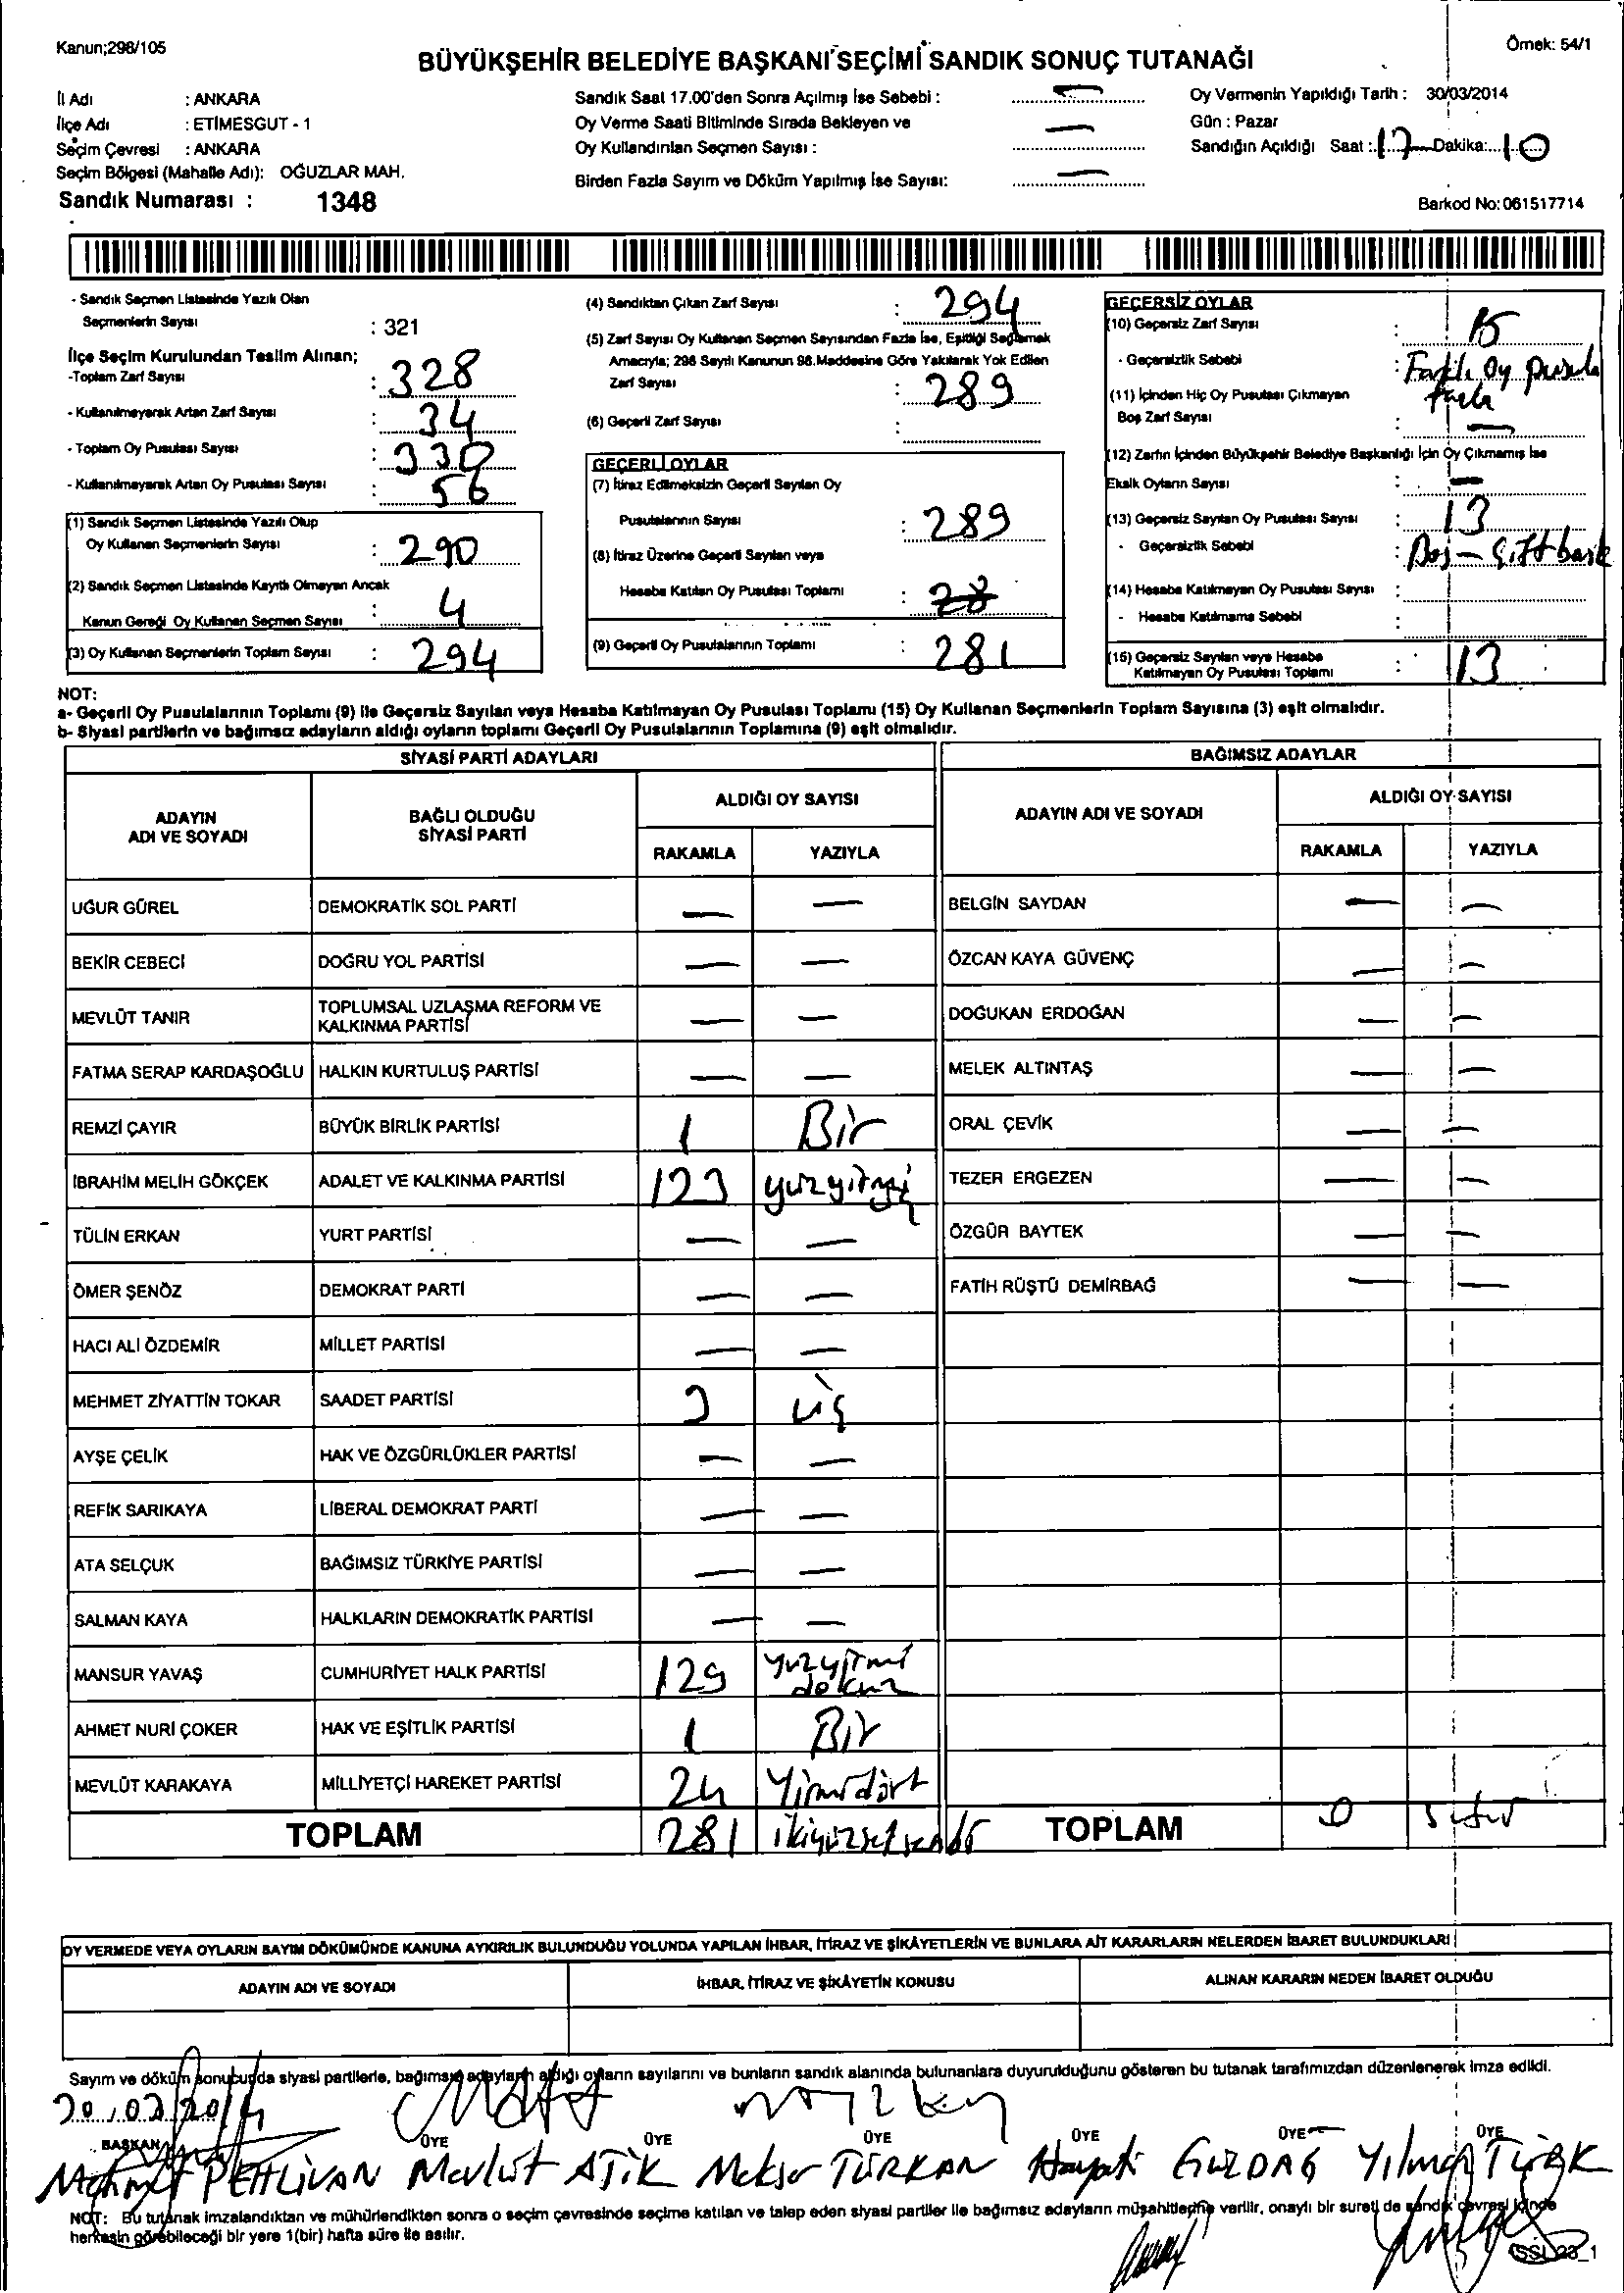 Kanun;298/105
Örnek: 54/1
BÜYÜKŞEHİR BELEDİYE BAŞKANI SEÇİMİ SANDIK SONUÇ TUTANAĞI
İl Adı : ANKARA
İlçe Adı : ETİMESGUT - 1
Seçim Çevresi : ANKARA
Seçim Bölgesi (Mahalle Adı): OĞUZLAR MAH.
Sandık Numarası : 1348
Sandık Saat 17.00'den Sonra Açılmış İse Sebebi : —
Oy Verme Saati Bitiminde Sırada Bekleyen ve
Oy Kullandırılan Seçmen Sayısı : —
Birden Fazla Sayım ve Döküm Yapılmış İse Sayısı: —
Oy Vermenin Yapıldığı Tarih : 30/03/2014
Gün : Pazar
Sandığın Açıldığı Saat : 17 Dakika: 10
Barkod No: 061517714
- Sandık Seçmen Listesinde Yazılı Olan
Seçmenlerin Sayısı : 321
İlçe Seçim Kurulundan Teslim Alınan;
-Toplam Zarf Sayısı : 328
- Kullanılmayarak Artan Zarf Sayısı : 34
- Toplam Oy Pusulası Sayısı : 330
- Kullanılmayarak Artan Oy Pusulası Sayısı : 56
(1) Sandık Seçmen Listesinde Yazılı Olup
Oy Kullanan Seçmenlerin Sayısı : 290
(2) Sandık Seçmen Listesinde Kayıtlı Olmayan Ancak
Kanun Gereği Oy Kullanan Seçmen Sayısı : 4
(3) Oy Kullanan Seçmenlerin Toplam Sayısı : 294
(4) Sandıktan Çıkan Zarf Sayısı : 294
(5) Zarf Sayısı Oy Kullanan Seçmen Sayısından Fazla İse, Eşitliği Sağlamak
Amacıyla; 298 Sayılı Kanunun 98.Maddesine Göre Yakılarak Yok Edilen
Zarf Sayısı : 289
(6) Geçerli Zarf Sayısı :
GEÇERLİ OYLAR
(7) İtiraz Edilmeksizin Geçerli Sayılan Oy
Pusulalarının Sayısı : 289
(8) İtiraz Üzerine Geçerli Sayılan veya
Hesaba Katılan Oy Pusulası Toplamı : 28
(9) Geçerli Oy Pusulalarının Toplamı : 281
GEÇERSİZ OYLAR
(10) Geçersiz Zarf Sayısı : 15
- Geçersizlik Sebebi : Oy pusula
(11) İçinden Hiç Oy Pusulası Çıkmayan
Boş Zarf Sayısı : —
(12) Zarfın İçinden Büyükşehir Belediye Başkanlığı İçin Oy Çıkmamış İse
Eksik Oyların Sayısı : —
(13) Geçersiz Sayılan Oy Pusulası Sayısı : 13
- Geçersizlik Sebebi : Boş - Çift bask
(14) Hesaba Katılmayan Oy Pusulası Sayısı :
- Hesaba Katılmama Sebebi :
(15) Geçersiz Sayılan veya Hesaba
Katılmayan Oy Pusulası Toplamı : 13
NOT:
a- Geçerli Oy Pusulalarının Toplamı (9) ile Geçersiz Sayılan veya Hesaba Katılmayan Oy Pusulası Toplamı (15) Oy Kullanan Seçmenlerin Toplam Sayısına (3) eşit olmalıdır.
b- Siyasi partilerin ve bağımsız adayların aldığı oyların toplamı Geçerli Oy Pusulalarının Toplamına (9) eşit olmalıdır.
SİYASİ PARTİ ADAYLARI BAĞIMSIZ ADAYLAR
ADAYIN ADI VE SOYADI BAĞLI OLDUĞU SİYASİ PARTİ ALDIĞI OY SAYISI ADAYIN ADI VE SOYADI ALDIĞI OY SAYISI
RAKAMLA YAZIYLA RAKAMLA YAZIYLA
UĞUR GÜREL DEMOKRATİK SOL PARTİ — — BELGİN SAYDAN — —
BEKİR CEBECİ DOĞRU YOL PARTİSİ — — ÖZCAN KAYA GÜVENÇ — —
MEVLÜT TANIR TOPLUMSAL UZLAŞMA REFORM VE KALKINMA PARTİSİ — — DOĞUKAN ERDOĞAN — —
FATMA SERAP KARDAŞOĞLU HALKIN KURTULUŞ PARTİSİ — — MELEK ALTINTAŞ — —
REMZİ ÇAYIR BÜYÜK BİRLİK PARTİSİ 1 Bir ORAL ÇEVİK — —
İBRAHİM MELİH GÖKÇEK ADALET VE KALKINMA PARTİSİ 123 TEZER ERGEZEN — —
TÜLİN ERKAN YURT PARTİSİ — — ÖZGÜR BAYTEK — —
ÖMER ŞENÖZ DEMOKRAT PARTİ — — FATİH RÜŞTÜ DEMİRBAĞ — —
HACI ALİ ÖZDEMİR MİLLET PARTİSİ — —
MEHMET ZİYATTİN TOKAR SAADET PARTİSİ 3 üç
AYŞE ÇELİK HAK VE ÖZGÜRLÜKLER PARTİSİ — —
REFİK SARIKAYA LİBERAL DEMOKRAT PARTİ — —
ATA SELÇUK BAĞIMSIZ TÜRKİYE PARTİSİ — —
SALMAN KAYA HALKLARIN DEMOKRATİK PARTİSİ — —
MANSUR YAVAŞ CUMHURİYET HALK PARTİSİ 129 yüzyirmi dokuz
AHMET NURİ ÇOKER HAK VE EŞİTLİK PARTİSİ 1 Bir
MEVLÜT KARAKAYA MİLLİYETÇİ HAREKET PARTİSİ 24 Yirmidört
TOPLAM 281 ikiyüzseksenbir TOPLAM 0 sıfır
OY VERMEDE VEYA OYLARIN SAYIM DÖKÜMÜNDE KANUNA AYKIRILIK BULUNDUĞU YOLUNDA YAPILAN İHBAR, İTİRAZ VE ŞİKÂYETLERİN VE BUNLARA AİT KARARLARIN NELERDEN İBARET BULUNDUKLARI
ADAYIN ADI VE SOYADI İHBAR, İTİRAZ VE ŞİKÂYETİN KONUSU ALINAN KARARIN NEDEN İBARET OLDUĞU
Sayım ve döküm sonucunda siyasi partilerle, bağımsız adayların aldığı oyların sayılarını ve bunların sandık alanında bulunanlara duyurulduğunu gösteren bu tutanak tarafımızdan düzenlenerek imza edildi.
30.03.2014
BAŞKAN ÜYE ÜYE ÜYE ÜYE ÜYE ÜYE
Mehmet PEHLİVAN Mevlüt ATİK TÜRKAN Hayati Yılmaz
NOT: Bu tutanak imzalandıktan ve mühürlendikten sonra o seçim çevresinde seçime katılan ve talep eden siyasi partiler ile bağımsız adayların müşahitlerine verilir, onaylı bir sureti de sandık çevresi içinde
herkesin görebileceği bir yere 1(bir) hafta süre ile asılır.